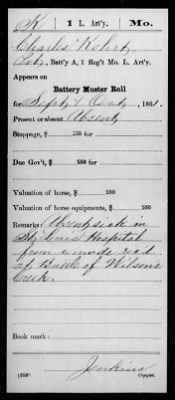 K | 1 L. Art'y. | Mo.
Charles Kohrtz
Batt'y A, 1 Reg't Mo. L. Art'y.
Appears on
Battery Muster Roll
for Sept & Oct, 1861.
Present or absent Absent
Stoppage, $ 100 for
Due Gov't, $ 100 for
Valuation of horse, $ 100
Valuation of horse equipments, $ 100
Remarks: Absent sick in
St. Louis Hospital
from wounds recd
at Battle of Wilson's
Creek.
Book mark:
Jenkins
(356) Copyist.